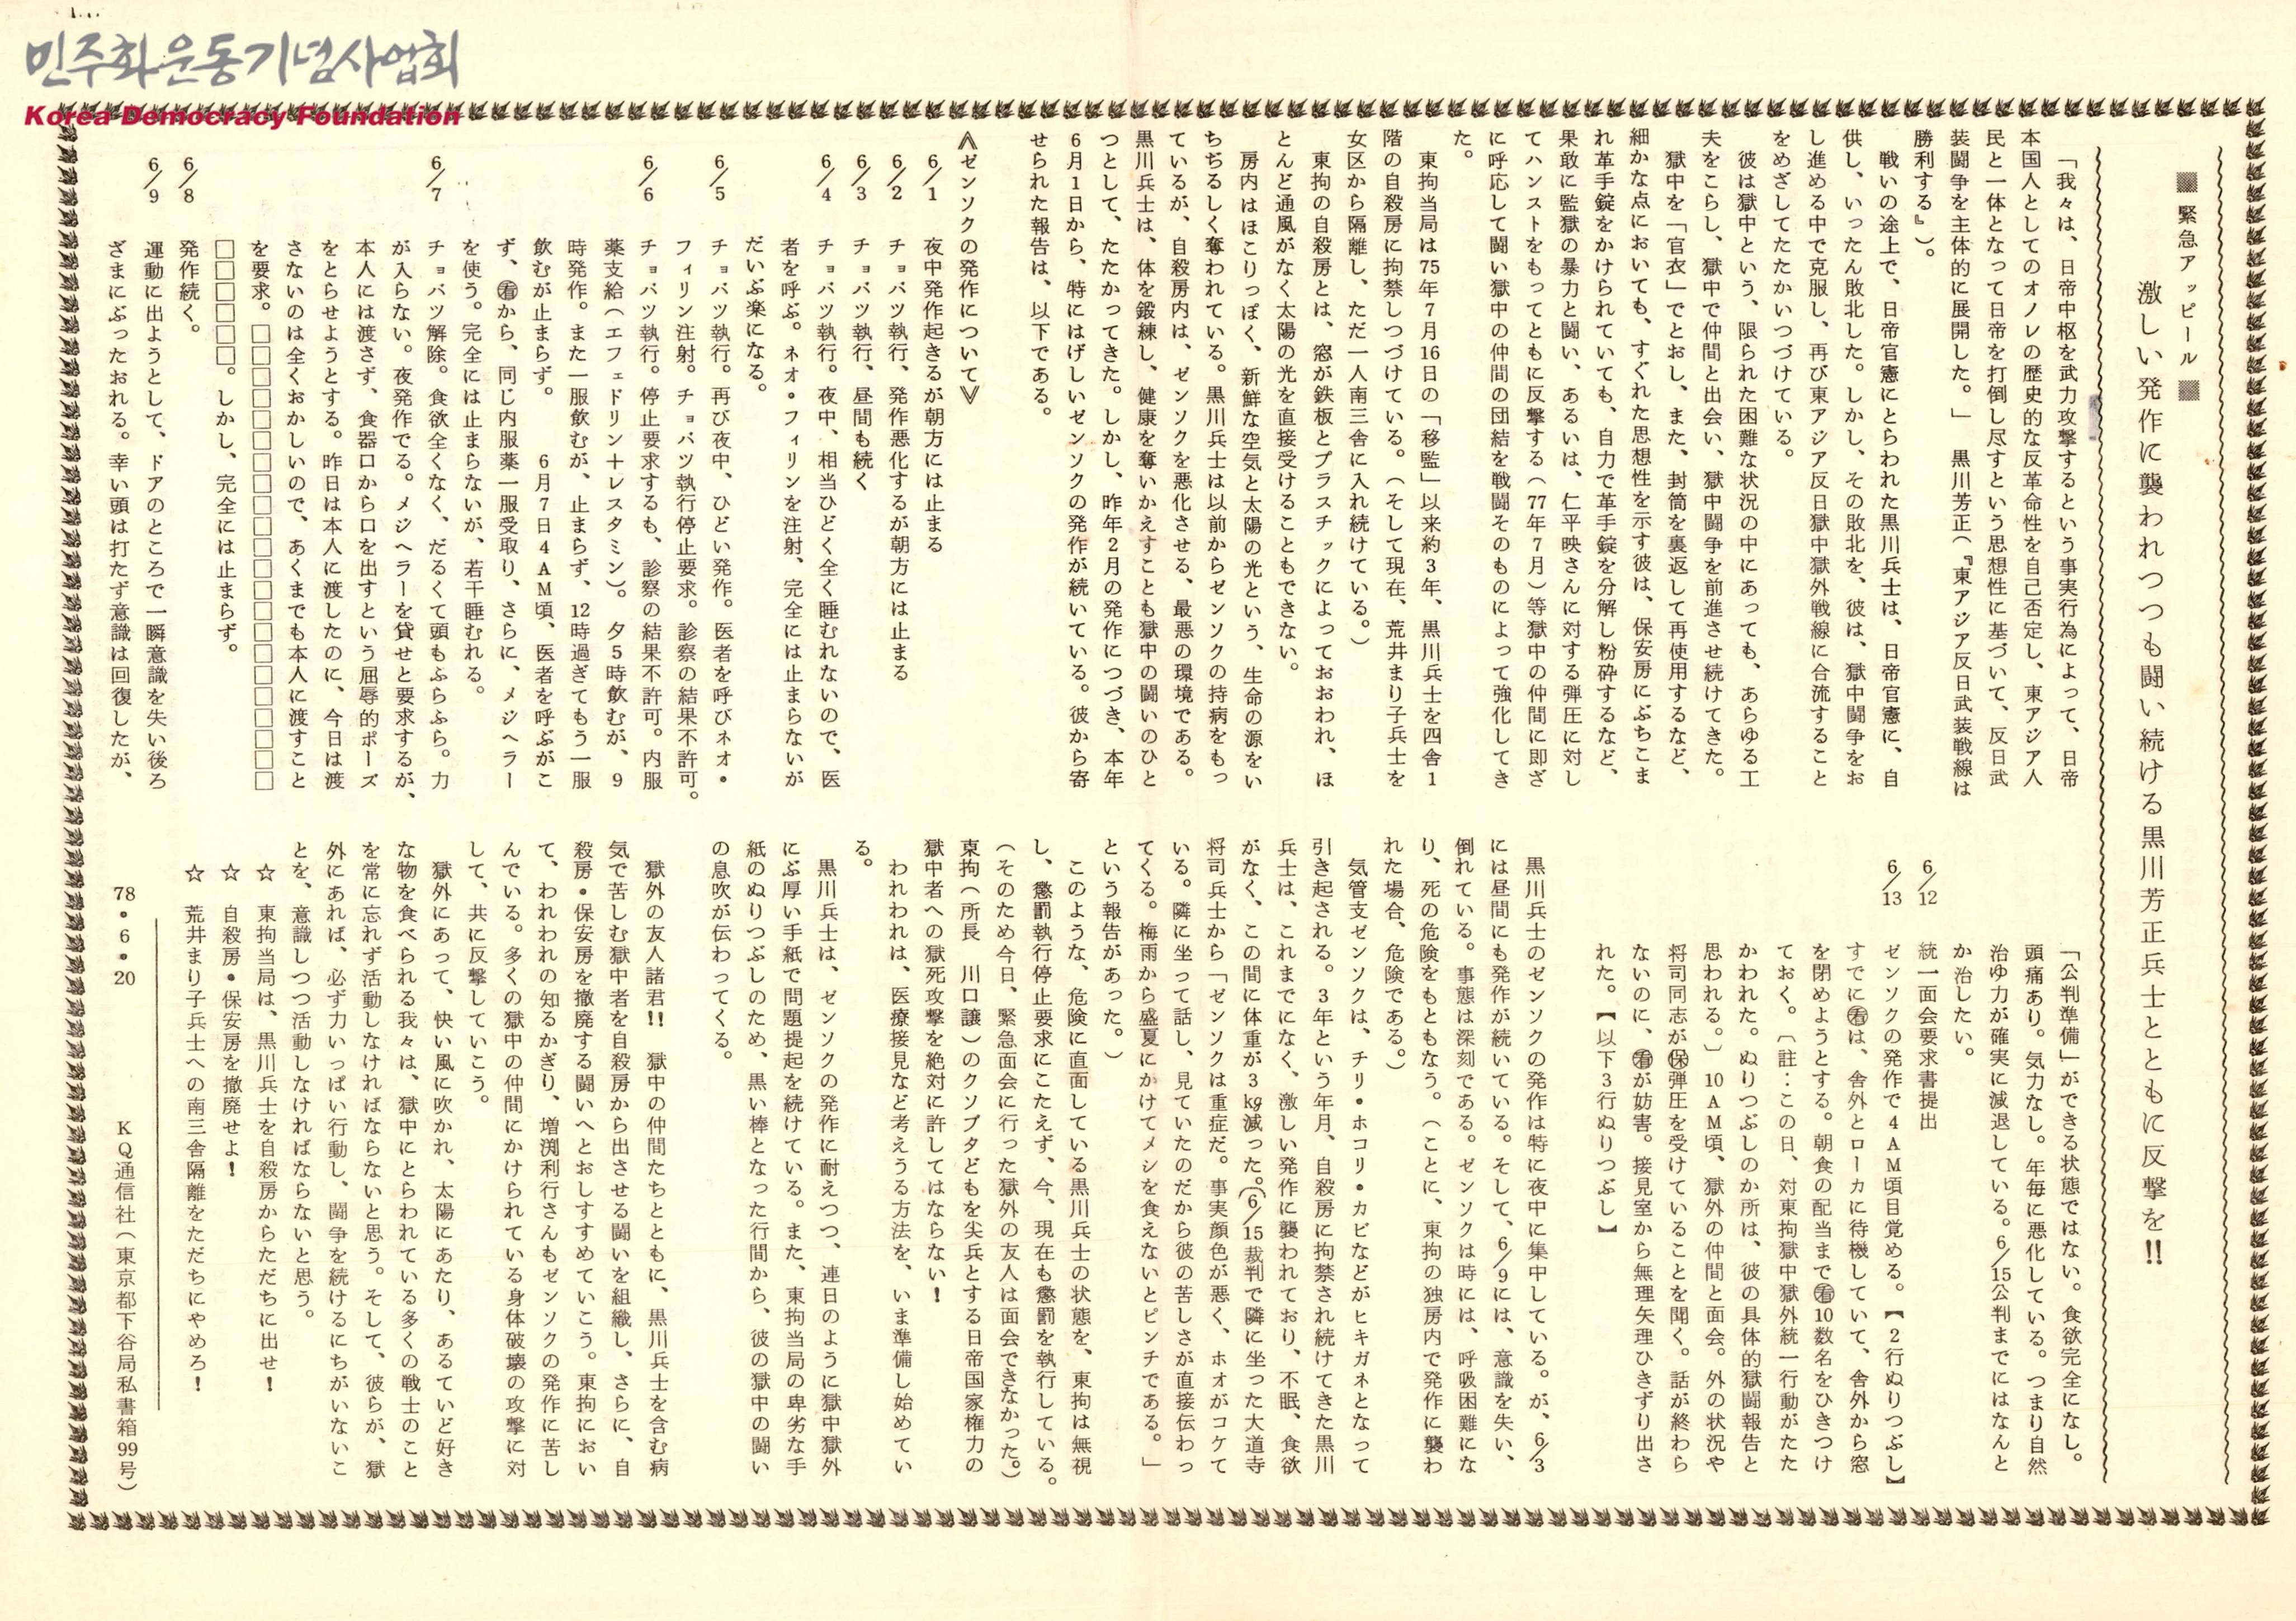 민주화운동기념사업회
Korea Democracy Foundation
▩緊急アッピール▩
激しい発作に襲われつつも闘い続ける黒川芳正兵士とともに反撃を!!
「我々は、日帝中枢を武力攻撃するという事実行為によって、日帝
本国人としてのオノレの歴史的な反革命性を自己否定し、東アジア人
民と一体となって日帝を打倒し尽すという思想性に基づいて、反日武
装闘争を主体的に展開した。」 黒川芳正(『東アジア反日武装戦線は
勝利する』)。
戦いの途上で、日帝官憲にとらわれた黒川兵士は、日帝官憲に、自
供し、いったん敗北した。しかし、その敗北を、彼は、獄中闘争をお
し進める中で克服し、再び東アジア反日獄中獄外戦線に合流すること
をめざしてたたかいつづけている。
彼は獄中という、限られた困難な状況の中にあっても、あらゆる工
夫をこらし、獄中で仲間と出会い、獄中闘争を前進させ続けてきた。
獄中を「官衣」でとおし、また、封筒を裏返して再使用するなど、
細かな点においても、すぐれた思想性を示す彼は、保安房にぶちこま
れ革手錠をかけられていても、自力で革手錠を分解し粉砕するなど、
果敢に監獄の暴力と闘い、あるいは、仁平映さんに対する弾圧に対し
てハンストをもってともに反撃する(77年7月)等獄中の仲間に即ざ
に呼応して闘い獄中の仲間の団結を戦闘そのものによって強化してき
た。
東拘当局は75年7月16日の「移監」以来約3年、黒川兵士を四舎1
階の自殺房に拘禁しつづけている。(そして現在、荒井まり子兵士を
女区から隔離し、ただ一人南三舎に入れ続けている。)
東拘の自殺房とは、窓が鉄板とプラスチックによっておおわれ、ほ
とんど通風がなく太陽の光を直接受けることもできない。
房内はほこりっぽく、新鮮な空気と太陽の光という、生命の源をい
ちぢるしく奪われている。黒川兵士は以前からゼンソクの持病をもっ
ているが、自殺房内は、ゼンソクを悪化させる、最悪の環境である。
黒川兵士は、体を鍛練し、健康を奪いかえすことも獄中の闘いのひと
つとして、たたかってきた。しかし、昨年2月の発作につづき、本年
6月1日から、特にはげしいゼンソクの発作が続いている。彼から寄
せられた報告は、以下である。
《ゼンソクの発作について》
6/1 夜中発作起きるが朝方には止まる
6/2 チョバツ執行、発作悪化するが朝方には止まる
6/3 チョバツ執行、昼間も続く
6/4 チョバツ執行。夜中、相当ひどく全く睡むれないので、医
者を呼ぶ。ネオ・フィリンを注射、完全には止まらないが
だいぶ楽になる。
6/5 チョバツ執行。再び夜中、ひどい発作。医者を呼びネオ・
フィリン注射。チョバツ執行停止要求。診察の結果不許可。
6/6 チョバツ執行。停止要求するも、診察の結果不許可。内服
薬支給(エフェドリン+レスタミン)。夕5時飲むが、9
時発作。また一服飲むが、止まらず、12時過ぎてもう一服
飲むが止まらず。 6月7日4AM頃、医者を呼ぶがこ
ず、㊕から、同じ内服薬一服受取り、さらに、メジヘラー
を使う。完全には止まらないが、若干睡むれる。
6/7 チョバツ解除。食欲全くなく、だるくて頭もふらふら。力
が入らない。夜発作でる。メジヘラーを貸せと要求するが、
本人には渡さず、食器口から口を出すという屈辱的ポーズ
をとらせようとする。昨日は本人に渡したのに、今日は渡
さないのは全くおかしいので、あくまでも本人に渡すこと
を要求。□□□□□□□□□□□□□□□□□□□□
□□□□□□。しかし、完全には止まらず。
6/8 発作続く。
6/9 運動に出ようとして、ドアのところで一瞬意識を失い後ろ
ざまにぶったおれる。幸い頭は打たず意識は回復したが、
「公判準備」ができる状態ではない。食欲完全になし。
頭痛あり。気力なし。年毎に悪化している。つまり自然
治ゆ力が確実に減退している。6/15公判までにはなんと
か治したい。
6/12 統一面会要求書提出
6/13 ゼンソクの発作で4AM頃目覚める。【2行ぬりつぶし】
すでに看は、舎外とローカに待機していて、舎外から窓
を閉めようとする。朝食の配当まで看10数名をひきつけ
ておく。〔註：この日、対東拘獄中獄外統一行動がたた
かわれた。ぬりつぶしのか所は、彼の具体的獄闘報告と
思われる。〕10AM頃、獄外の仲間と面会。外の状況や
将司同志が保弾圧を受けていることを聞く。話が終わら
ないのに、看が妨害。接見室から無理矢理ひきずり出さ
れた。【以下3行ぬりつぶし】
黒川兵士のゼンソクの発作は特に夜中に集中している。が、6/3
には昼間にも発作が続いている。そして、6/9には、意識を失い、
倒れている。事態は深刻である。ゼンソクは時には、呼吸困難にな
り、死の危険をもともなう。(ことに、東拘の独房内で発作に襲わ
れた場合、危険である。)
気管支ゼンソクは、チリ・ホコリ・カビなどがヒキガネとなって
引き起される。3年という年月、自殺房に拘禁され続けてきた黒川
兵士は、これまでになく、激しい発作に襲われており、不眠、食欲
がなく、この間に体重が3kg減った。(6/15裁判で隣に坐った大道寺
将司兵士から「ゼンソクは重症だ。事実顔色が悪く、ホオがコケて
いる。隣に坐って話し、見ていたのだから彼の苦しさが直接伝わっ
てくる。梅雨から盛夏にかけてメシを食えないとピンチである。」
という報告があった。)
このような、危険に直面している黒川兵士の状態を、東拘は無視
し、懲罰執行停止要求にこたえず、今、現在も懲罰を執行している。
(そのため今日、緊急面会に行った獄外の友人は面会できなかった。)
東拘(所長 川口譲)のクソブタどもを尖兵とする日帝国家権力の
獄中者への獄死攻撃を絶対に許してはならない!
われわれは、医療接見など考えうる方法を、いま準備し始めてい
る。
黒川兵士は、ゼンソクの発作に耐えつつ、連日のように獄中獄外
にぶ厚い手紙で問題提起を続けている。また、東拘当局の卑劣な手
紙のぬりつぶしのため、黒い棒となった行間から、彼の獄中の闘い
の息吹が伝わってくる。
獄外の友人諸君!! 獄中の仲間たちとともに、黒川兵士を含む病
気で苦しむ獄中者を自殺房から出させる闘いを組織し、さらに、自
殺房・保安房を撤廃する闘いへとおしすすめていこう。東拘におい
て、われわれの知るかぎり、増渕利行さんもゼンソクの発作に苦し
んでいる。多くの獄中の仲間にかけられている身体破壊の攻撃に対
して、共に反撃していこう。
獄外にあって、快い風に吹かれ、太陽にあたり、あるていど好き
な物を食べられる我々は、獄中にとらわれている多くの戦士のこと
を常に忘れず活動しなければならないと思う。そして、彼らが、獄
外にあれば、必ず力いっぱい行動し、闘争を続けるにちがいないこ
とを、意識しつつ活動しなければならないと思う。
☆ 東拘当局は、黒川兵士を自殺房からただちに出せ!
☆ 自殺房・保安房を撤廃せよ!
☆ 荒井まり子兵士への南三舎隔離をただちにやめろ!
78・6・20 KQ通信社(東京都下谷局私書箱99号)